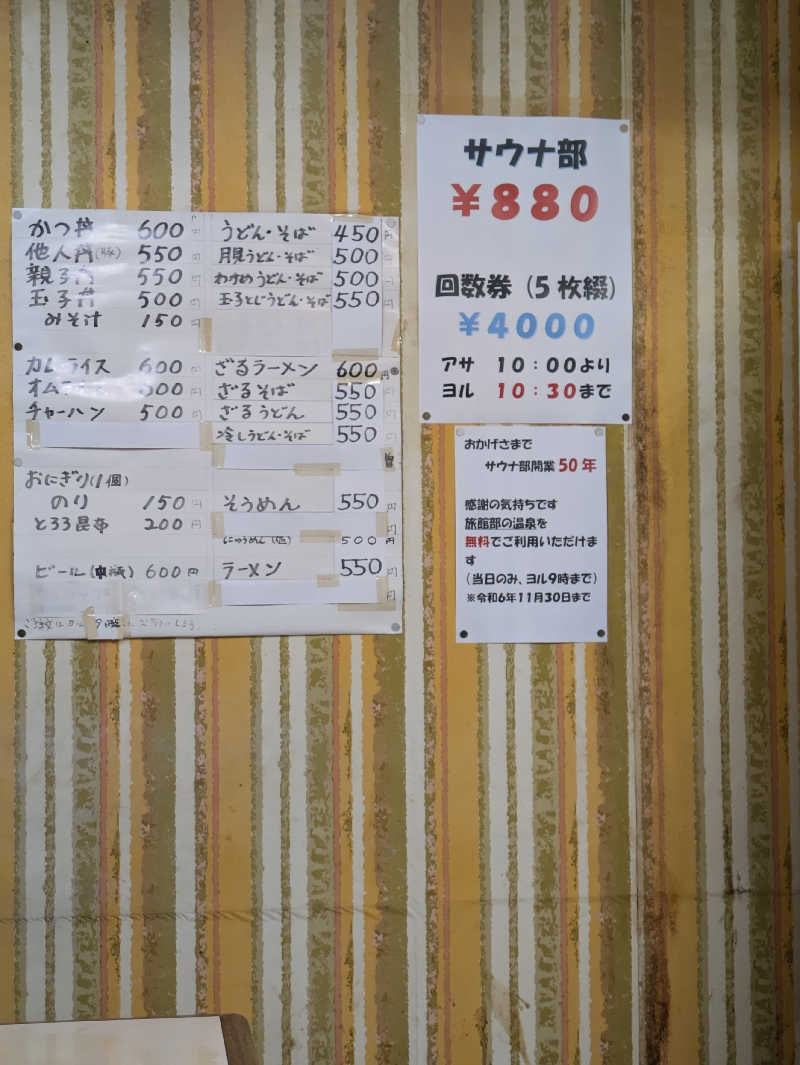 かつ丼 600円
他人丼(豚) 550円
親子丼 550円
玉子丼 500円
みそ汁 150円
カレーライス 600円
オムライス 600円
チャーハン 500円
おにぎり(1個)
のり 150円
とろろ昆布 200円
ビール(中瓶) 600円
うどん・そば 450円
月見うどん・そば 500円
わかめうどん・そば 500円
玉子とじうどん・そば 550円
ざるラーメン 600円
ざるそば 550円
ざるうどん 550円
冷しうどん・そば 550円
そうめん 550円
にゅうめん 500円
ラーメン 550円
サウナ部
¥880
回数券(5枚綴)
¥4000
アサ 10:00より
ヨル 10:30まで
おかげさまで
サウナ部開業50年
感謝の気持ちです
旅館部の温泉を
無料でご利用いただけま
す
(当日のみ、ヨル9時まで)
※令和6年11月30日まで